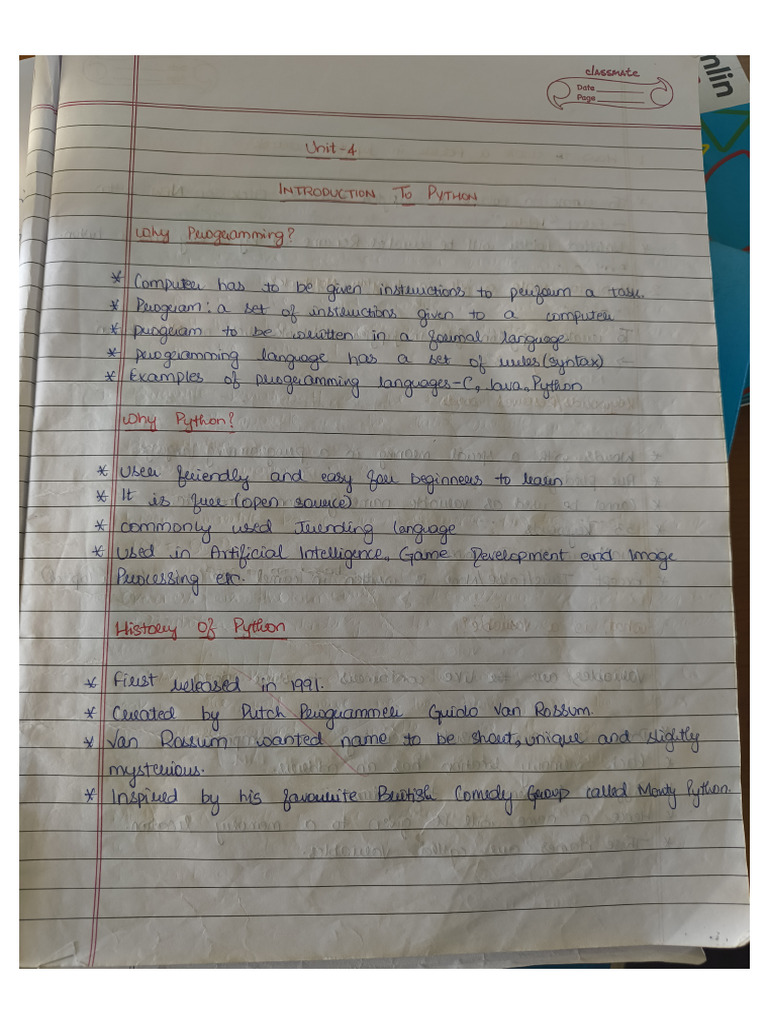 classmate
Date
Page
nlin
Unit-4
INTRODUCTION To PYTHON
Why Programming?
* Computer has to be given instructions to perform a task.
* Program: a set of instructions given to a computer
* program to be written in a formal language
* programming language has a set of rules (syntax)
* Examples of programming languages - C, Java, Python
Why Python?
* User friendly and easy for beginners to learn
* It is free (open source)
* commonly used Trending language
* used in Artificial Intelligence, Game Development and Image
Processing etc.
History Of Python
* First released in 1991.
* Created by Dutch Programmer Guido Van Rossum.
* Van Rossum wanted name to be short, unique and slightly
mysterious.
* Inspired by his favourite British Comedy Group called Monty Python.